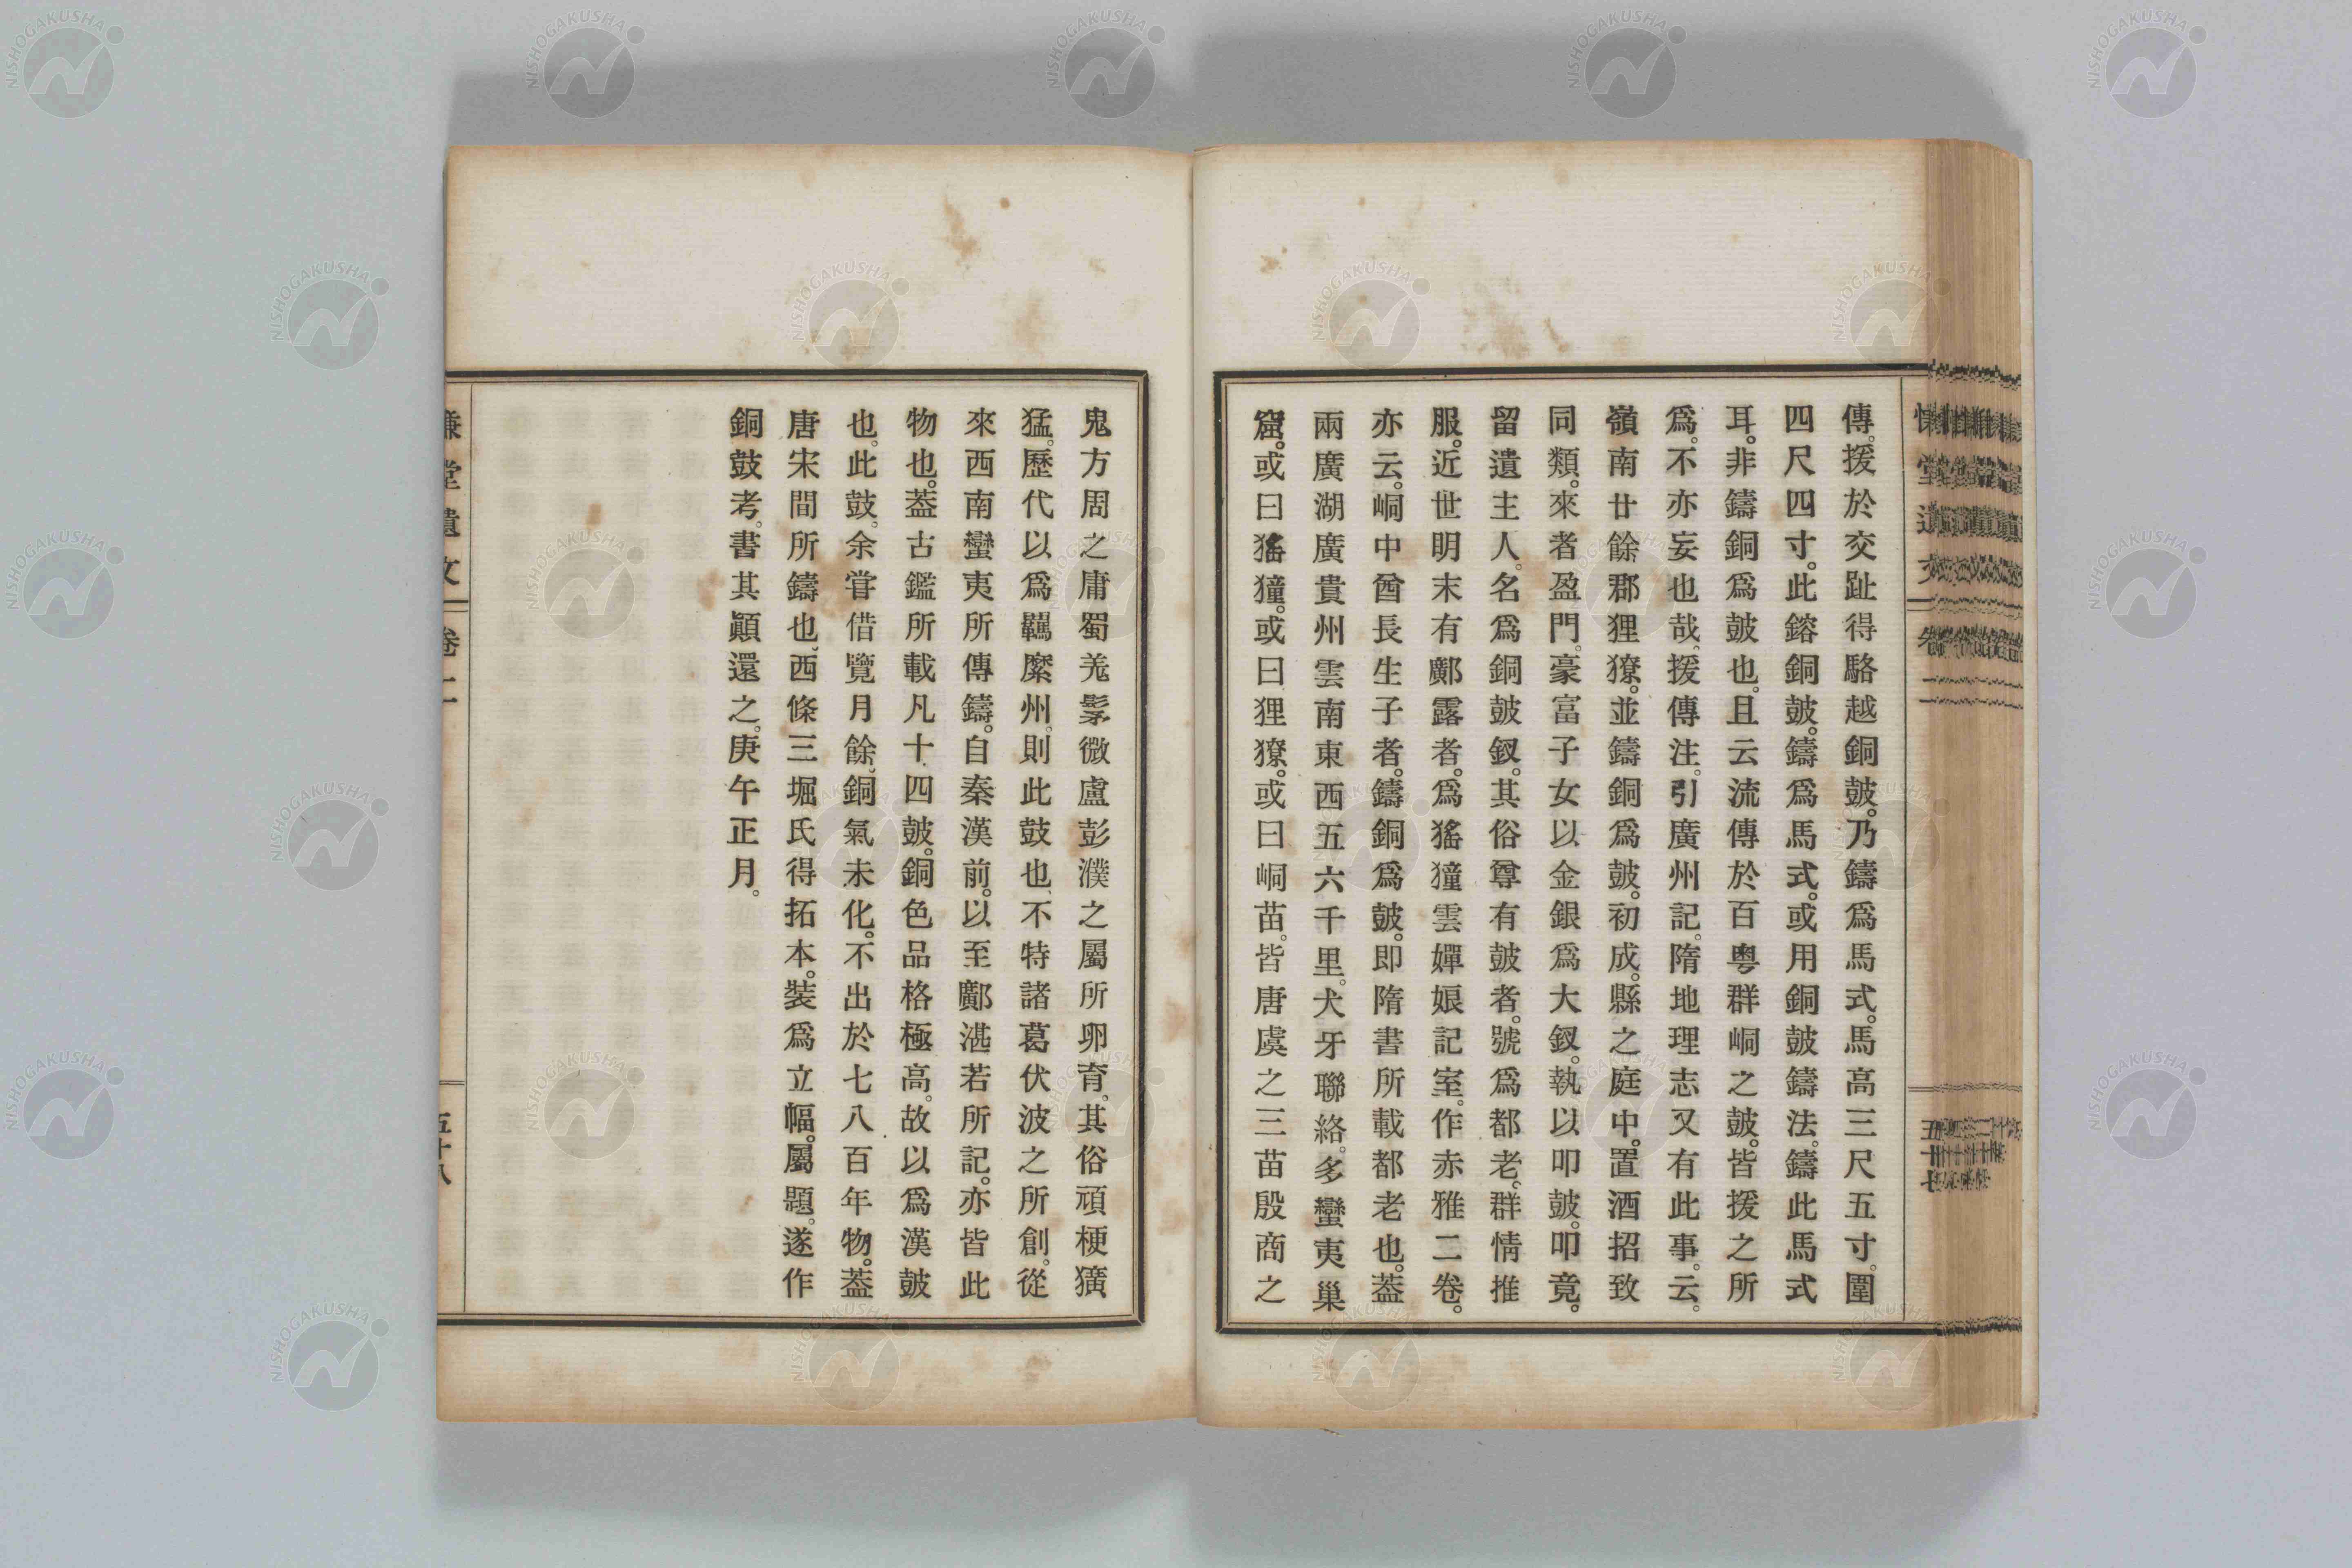 傳。援於交趾得駱越銅皷。乃鑄爲馬式。馬高三尺五寸。圍
四尺四寸。此鎔銅皷。鑄爲馬式。或用銅皷鑄法。鑄此馬式
耳。非鑄銅爲皷也。且云流傳於百粤群峒之皷。皆援之所
爲。不亦妄也哉。援傳注。引廣州記。隋地理志又有此事。云。
嶺南廿餘郡狸獠。並鑄銅爲皷。初成。縣之庭中。置酒招致
同類。來者盈門。豪富子女以金銀爲大釵。執以叩皷。叩竟。
留遺主人。名爲銅皷釵。其俗尊有皷者。號爲都老。群情推
服。近世明末有鄺露者。爲猺獞雲嬋娘記室。作赤雅二卷。
亦云。峒中酋長生子者。鑄銅爲皷。即隋書所載都老也。葢
兩廣湖廣貴州雲南東西五六千里。犬牙聯絡。多蠻夷巢
窟。或曰猺獞。或曰狸獠。或曰峒苗。皆唐虞之三苗殷商之
鬼方周之庸蜀羌髳微盧彭濮之屬所卵育。其俗頑梗獷
猛。歷代以爲羈縻州。則此鼓也、不特諸葛伏波之所創。從
來西南蠻夷所傳鑄。自秦漢前。以至鄺湛若所記。亦皆此
物也。葢古鑑所載凡十四皷。銅色品格極高。故以爲漢皷
也。此鼓。余甞借覽月餘、銅氣未化。不出於七八百年物。葢
唐宋間所鑄也、西條三堀氏得拓本。裝爲立幅。屬題。遂作
銅鼓考。書其顚還之。庚午正月。
慊堂遺文
卷二
五十八